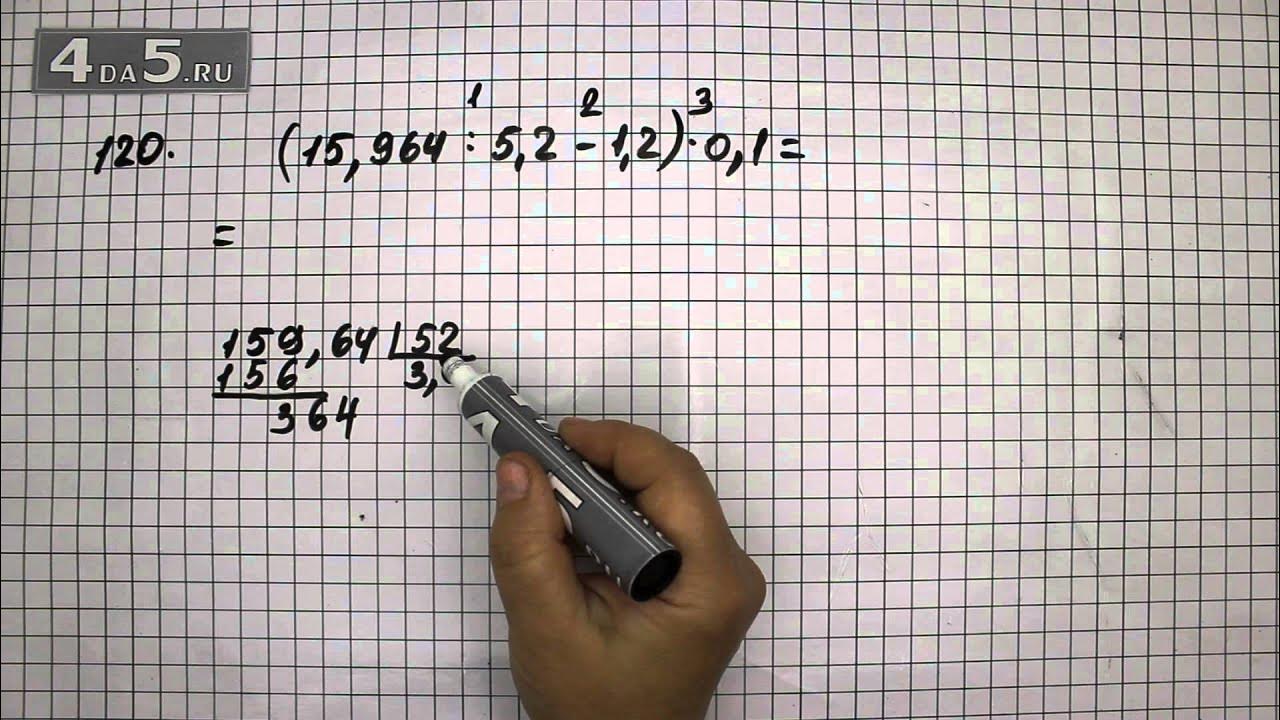 4DA5.RU
1 2 3
120. (15,964 : 5,2 - 1,2) · 0,1 =
=
159,64 52
156 3,
364